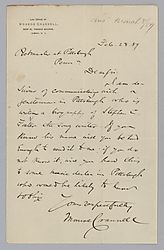 LAW OFFICE OF
MONROE CRANNELL,
ALBANY, N. Y.
Feb. 28. 89
Postmaster at Pittsburgh
Penn
Dear sir
I am de-
sirous of communicating with a
gentleman in Pittsburgh who is
writing a biography of Stephen C.
Foster the song writer. If you
know his name will you be kind
enough to send it to me. if you do
not know it, will you hand this
to some music dealer in Pittsburgh
who would be likely to know
Yours respectfully
Monroe Crannell